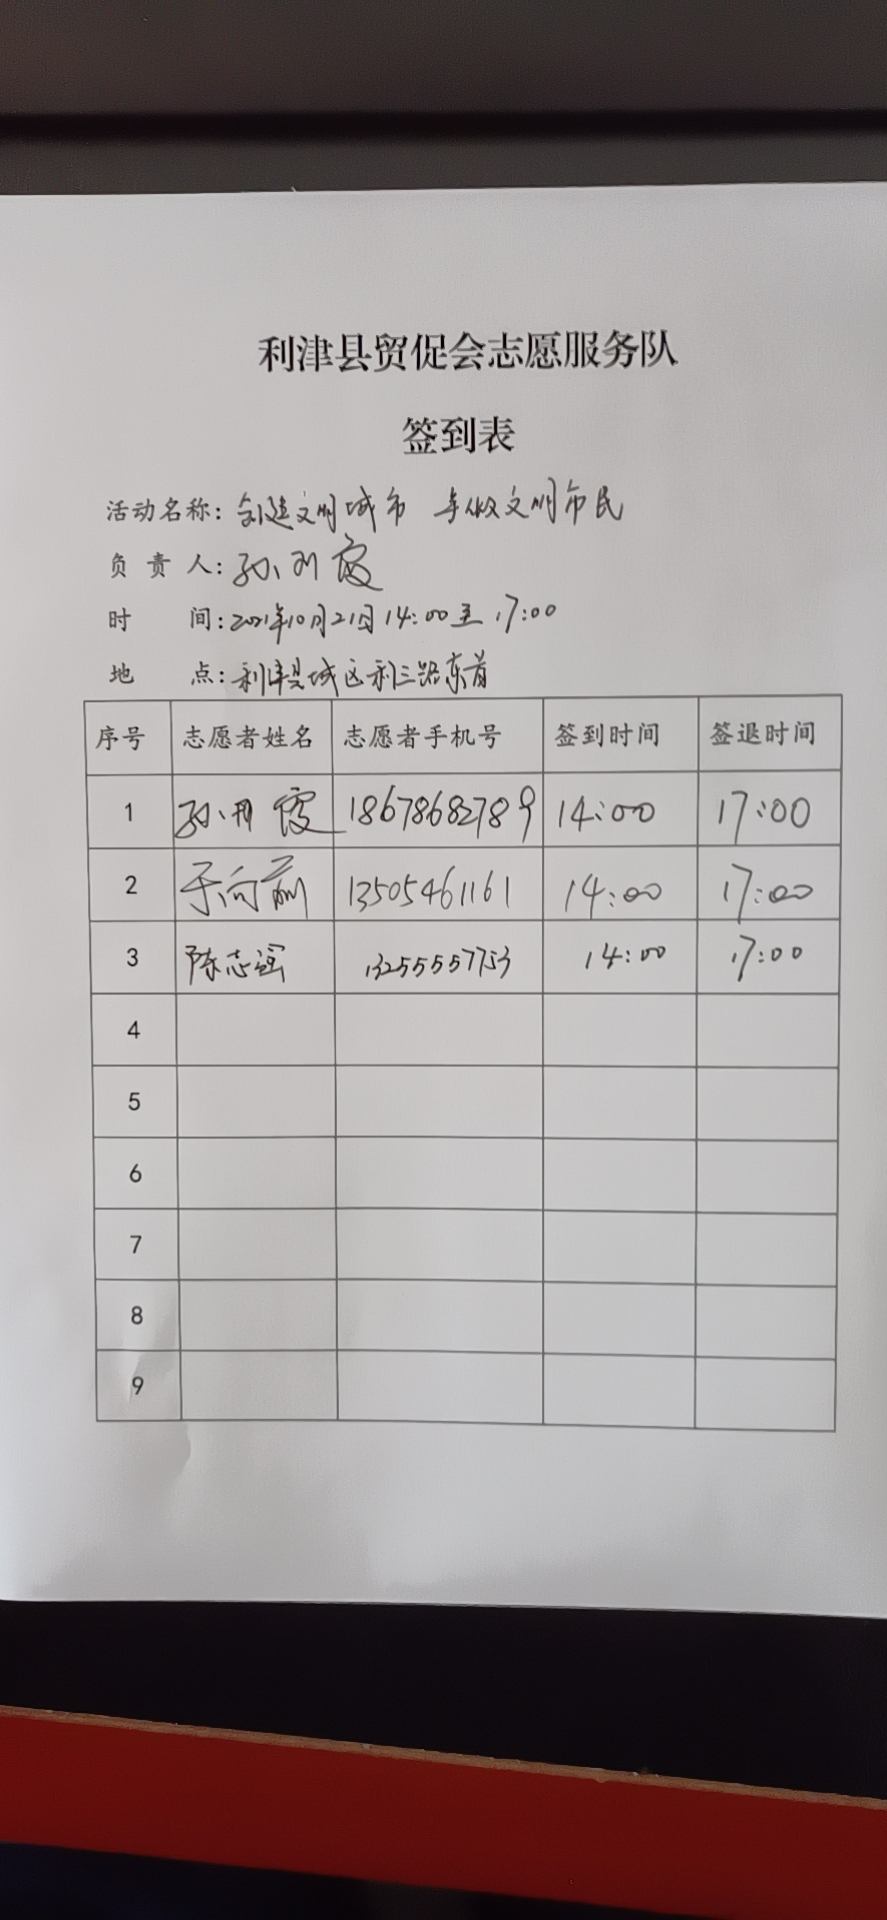 利津县贸促会志愿服务队
签到表
活动名称: 创建文明城市 争做文明市民
负责人: 孙 霞
时间: 2021年10月21日 14:00至17:00
地点: 利津县城区利三路东首
序号 志愿者姓名 志愿者手机号 签到时间 签退时间
1 孙 霞 18678682789 14:00 17:00
2 于向前 13505461161 14:00 17:00
3 陈志 13255557753 14:00 17:00
4
5
6
7
8
9